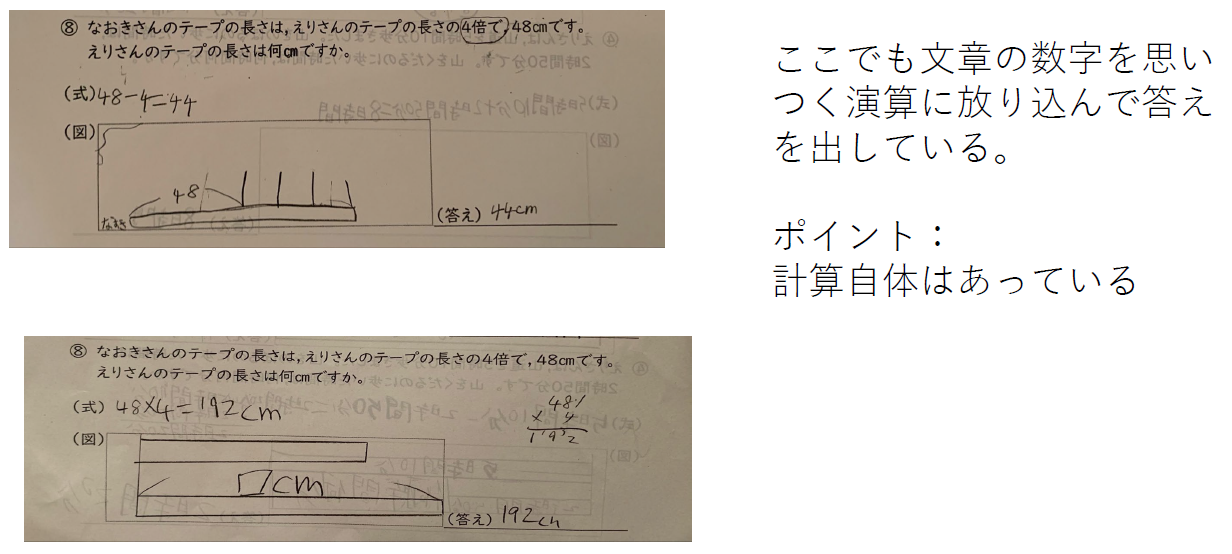 ⑧ なおきさんのテープの長さは,えりさんのテープの長さの4倍で,48cmです。
えりさんのテープの長さは何cmですか。
(式)48-4=44
(図)
48
なおき
(答え) 44cm
ここでも文章の数字を思い
つく演算に放り込んで答え
を出している。
ポイント：
計算自体はあっている
⑧ なおきさんのテープの長さは,えりさんのテープの長さの4倍で,48cmです。
えりさんのテープの長さは何cmですか。
(式) 48×4=192cm
48
× 4
192
(図)
□cm
(答え) 192cm